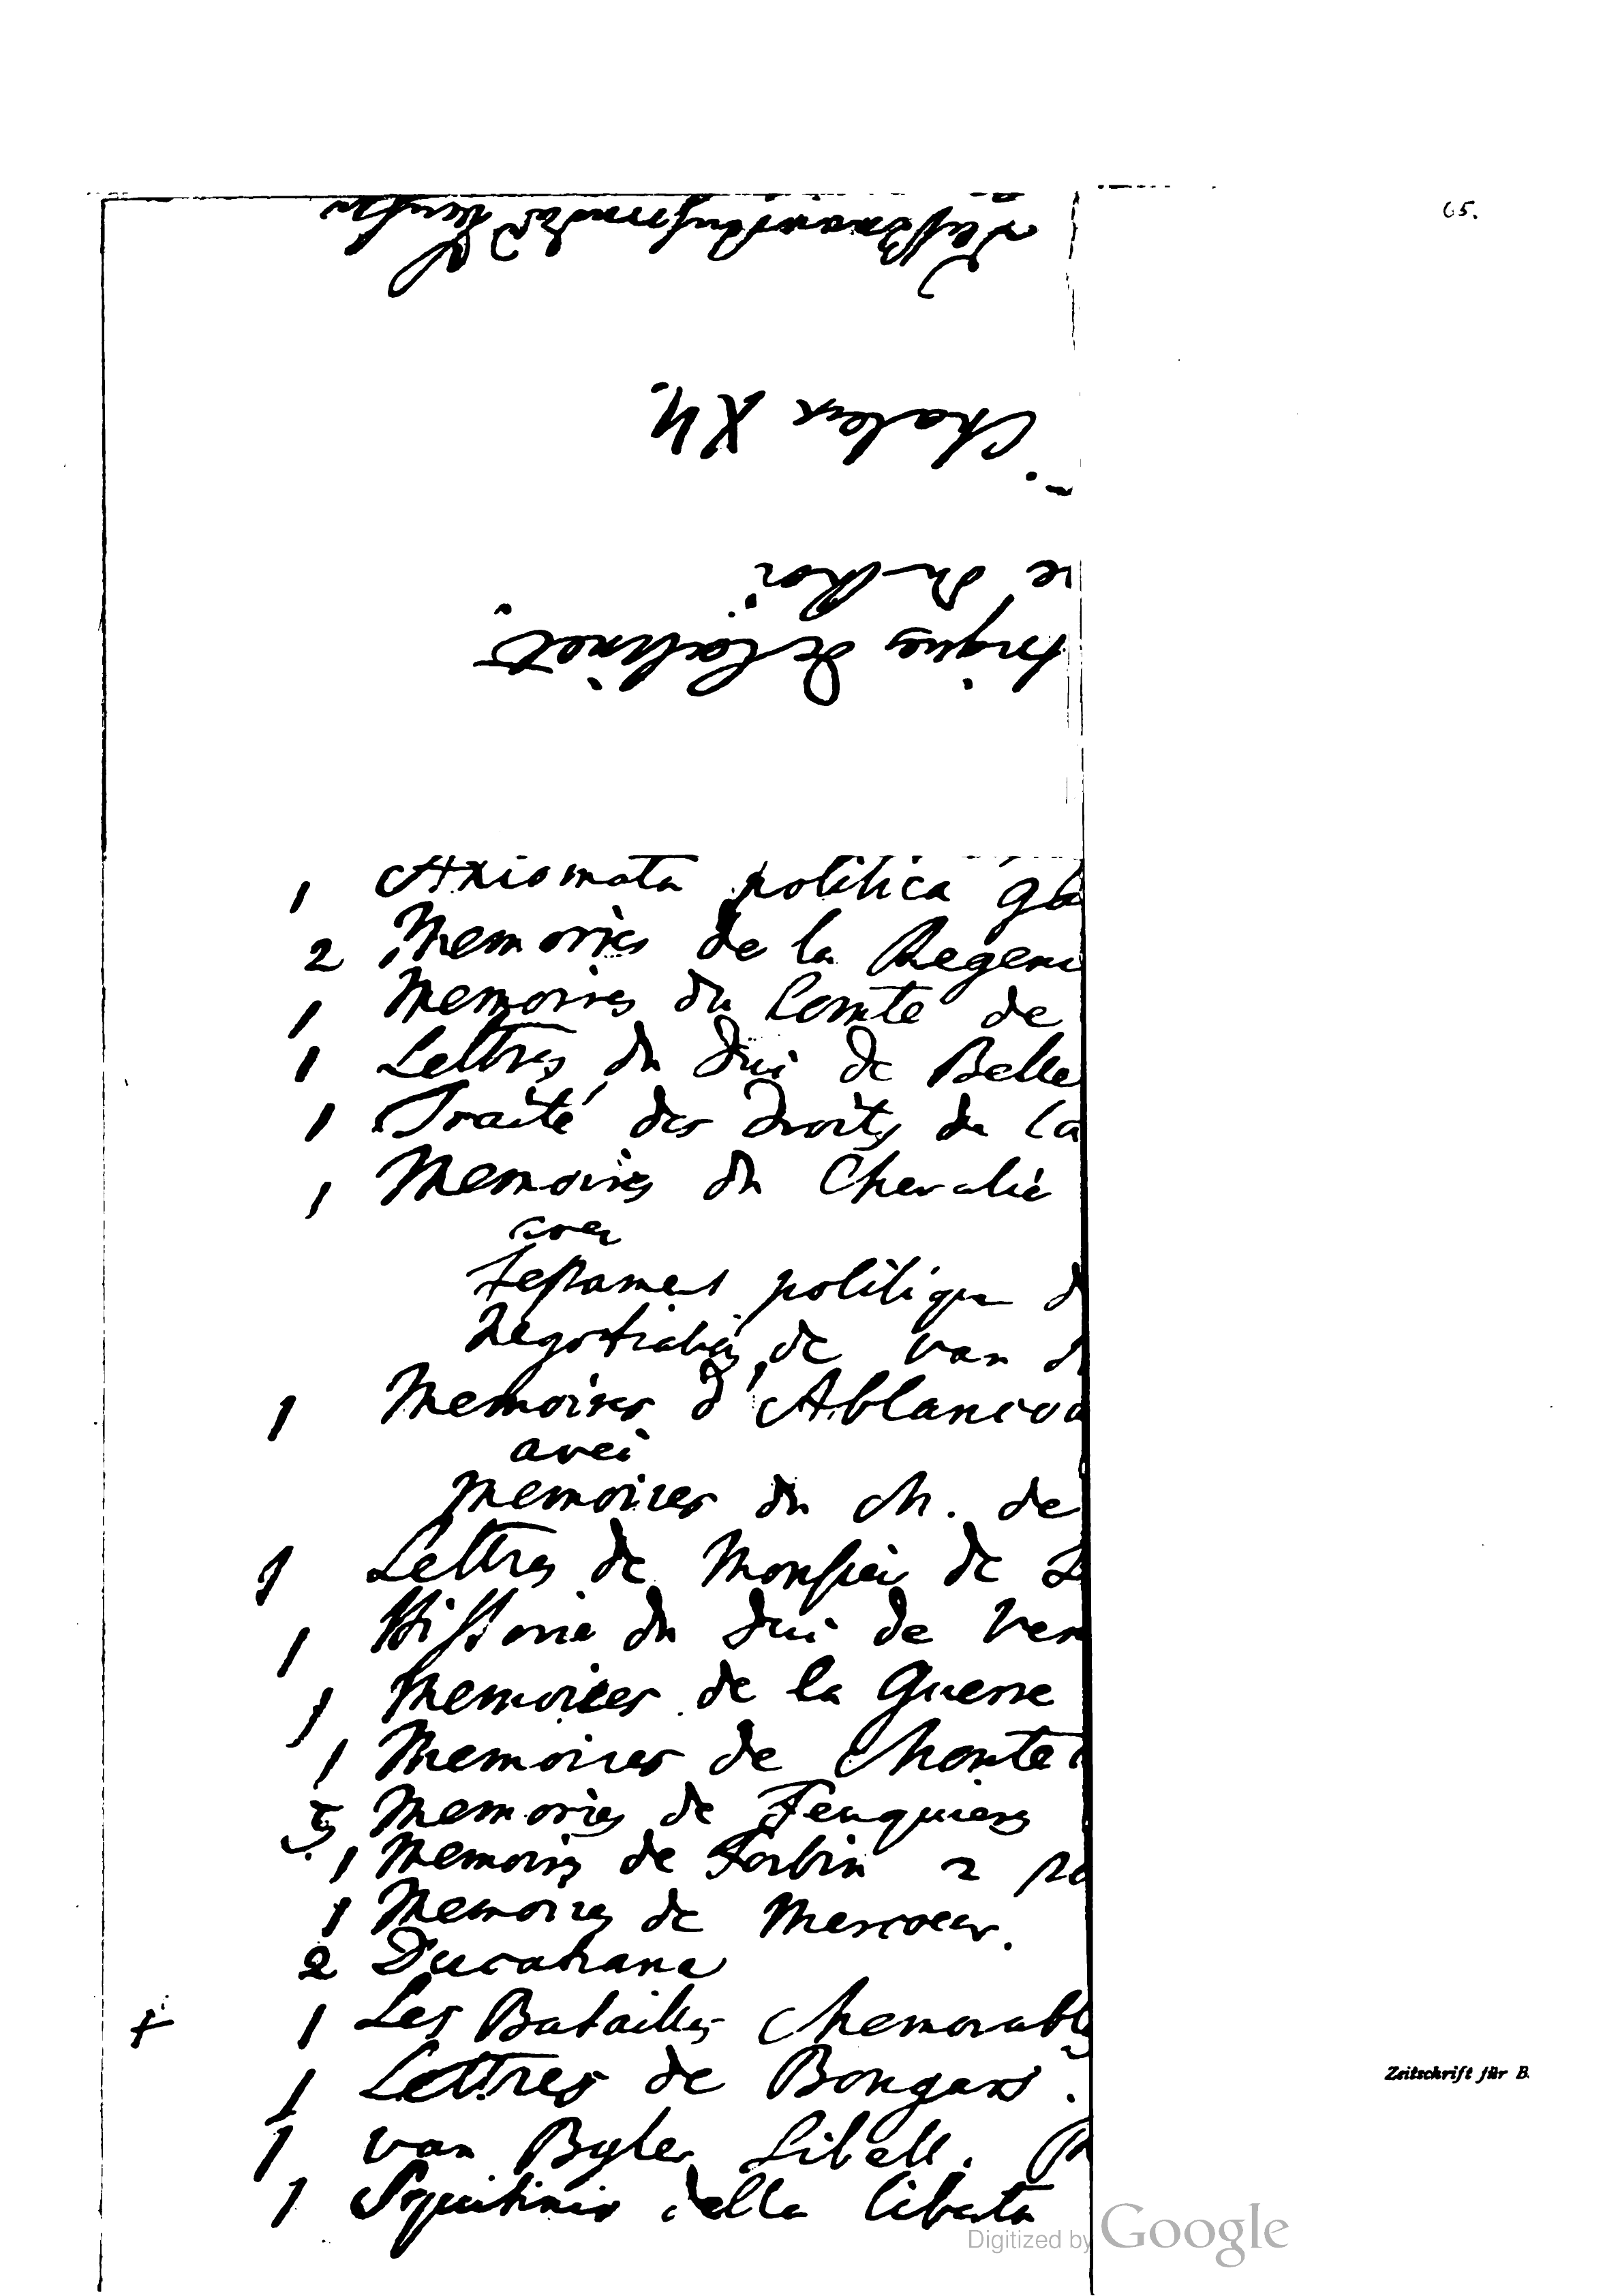 65.
Charles XII.
du Roi
de Cabinet
1 Axiomata politica
2 Memories de la Regenc
1 Memoires du Comte de
1 Lettres du Duc de Belle
1 Traité des Droits de la
1 Memoires du Chevalie
avec
Testament politique d
de van
1 Memoires d'Ablancou
avec
Memoires du M. de
1 Lettres de Monsieur de
1 Histoire du Duc de Ven
1 Memoires de la Guerre
1 Memoires de Monte
Memories de Feuquieres
1 Memoires de Forbin 2
1 Memoires de Mercoeur.
2 Ducatiana
+ 1 Les Batailles Memorable
1 Lettres de Bongars.
1 van Byler Libell.
1 Squitinio della liberta
Zeitschrift für B.
Digitized by Google